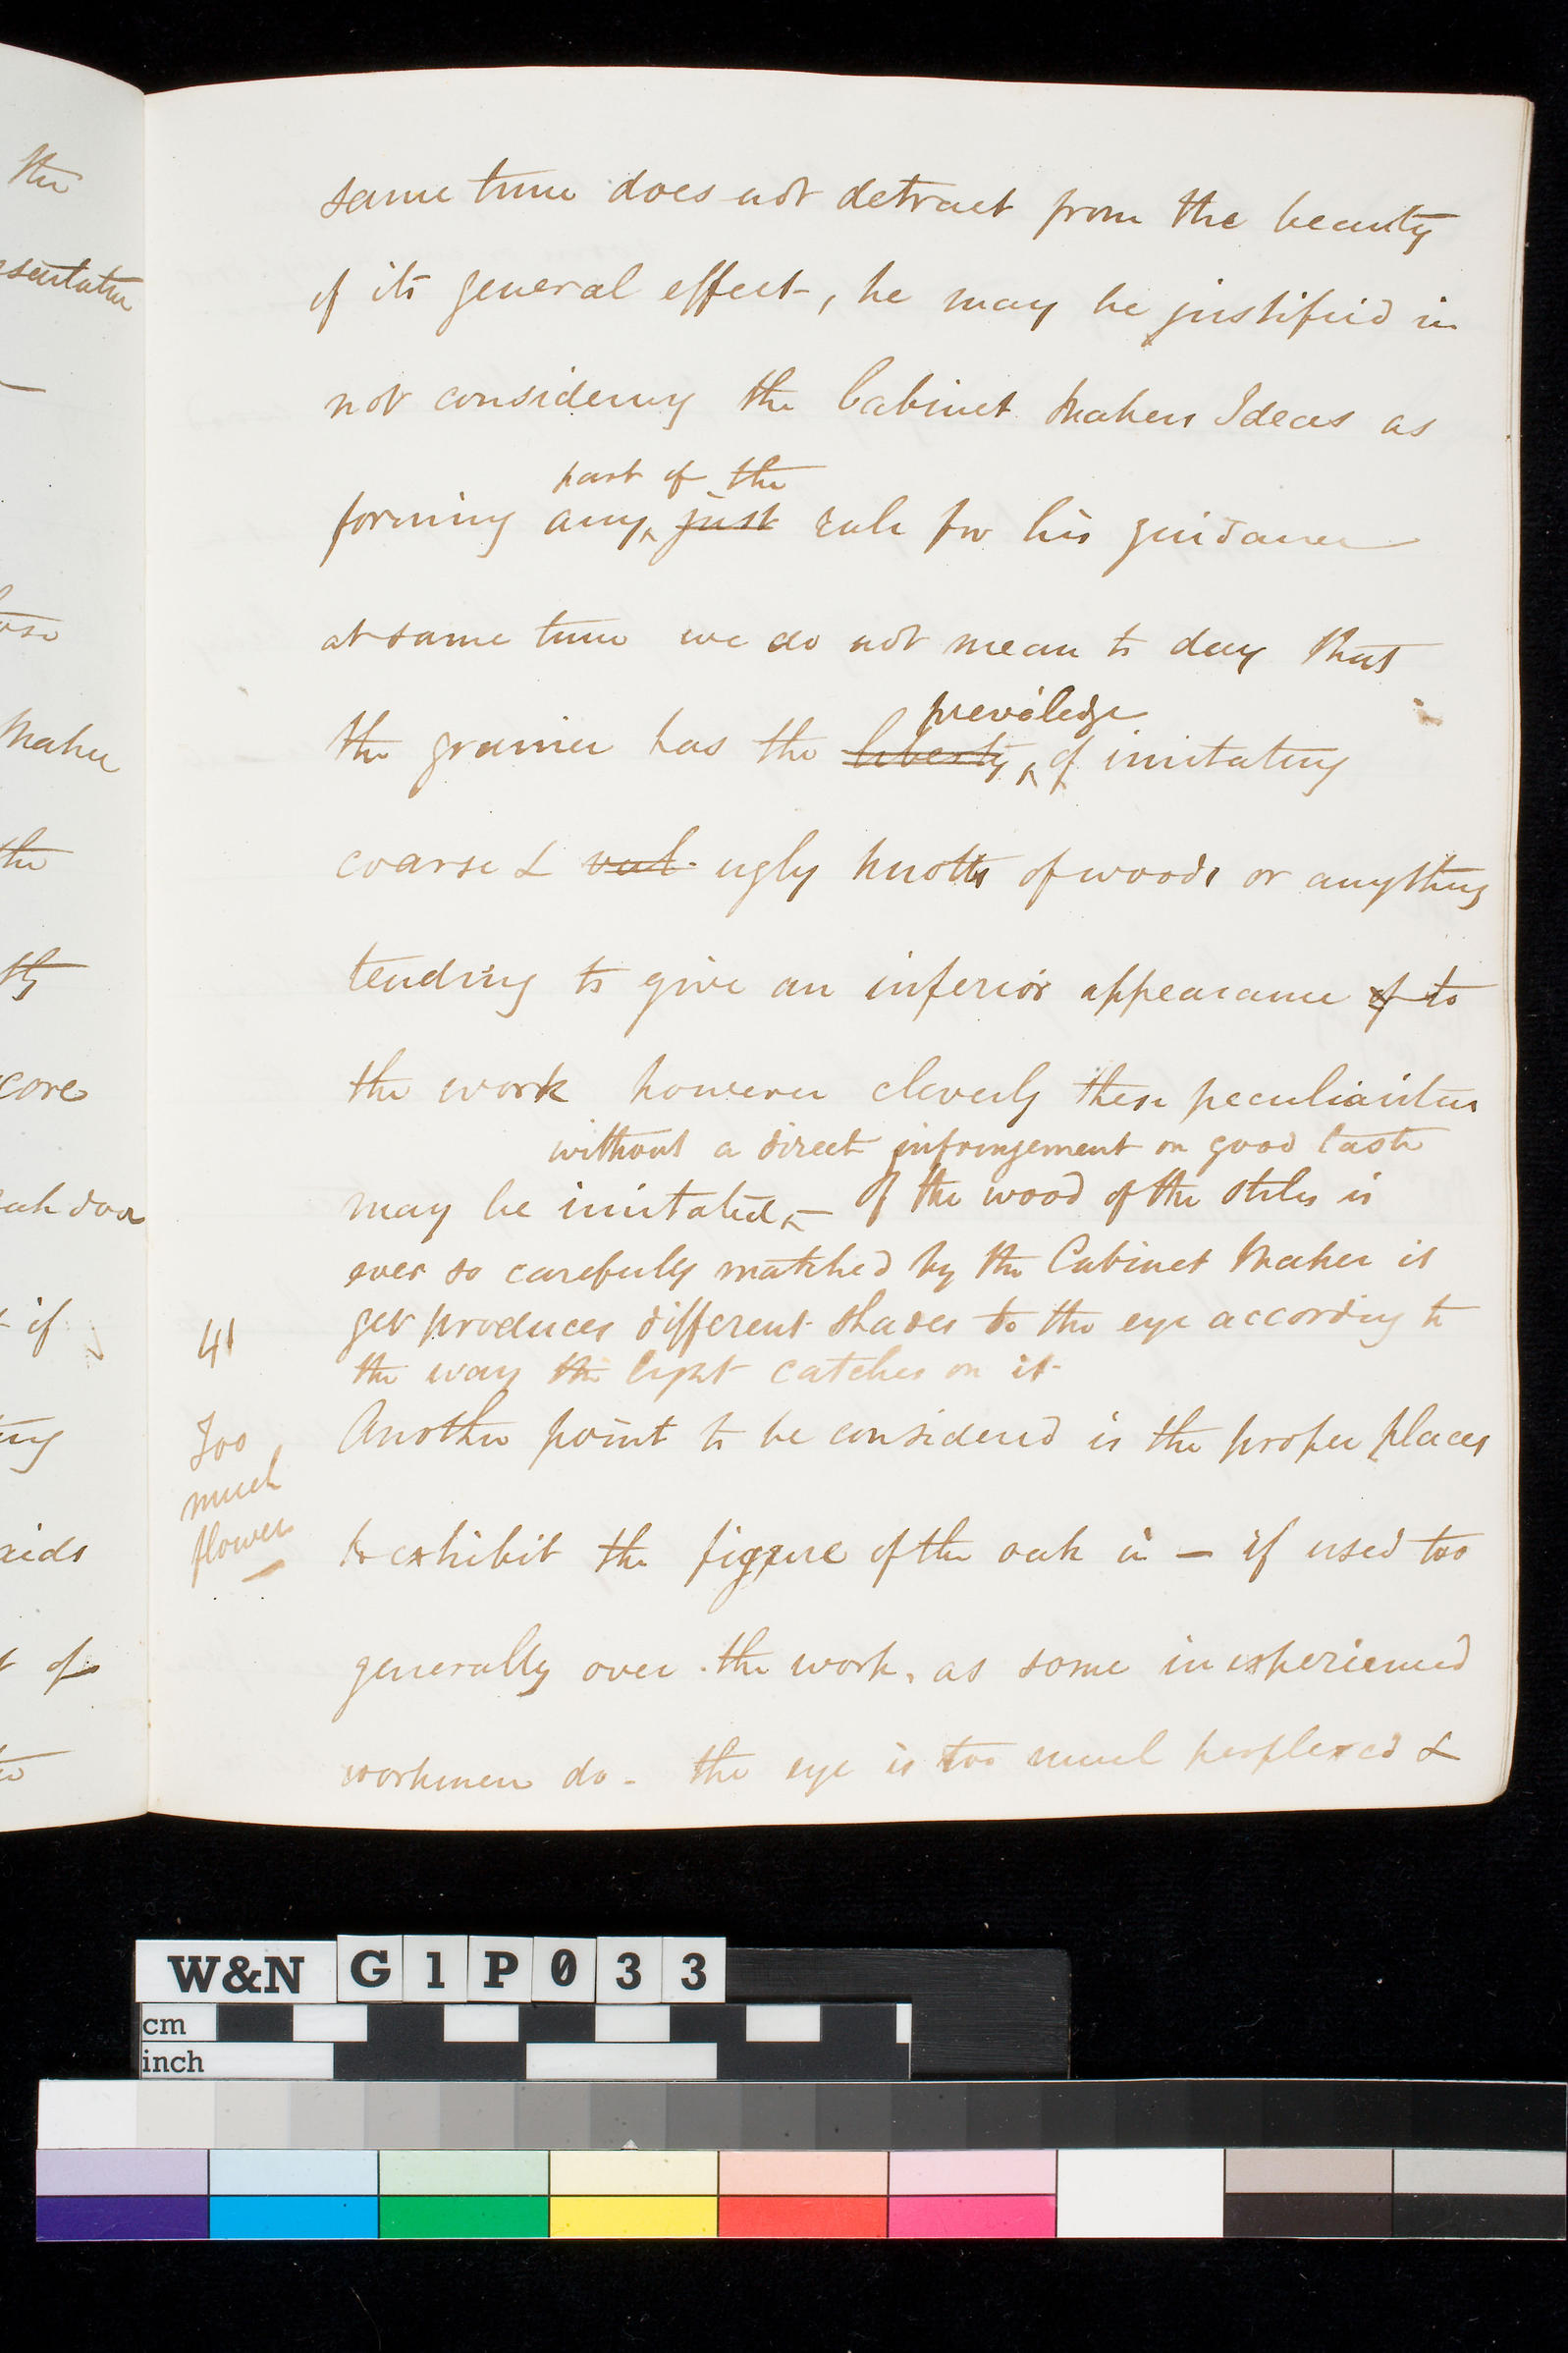 the
sentation
Maker
the
core
oak door
if
ing
aids
of
same time does not detract from the beauty
of its general effect, he may be justified in
not considering the Cabinet Makers Ideas as
part of the
forming any ^ just rule for his guidance
at same time we do not mean to deny that
previledge
the grainer has the liberty ^ of imitating
coarse & vul- ugly knotts of woods or anything
tending to give an inferior appearance of to
the work however cleverly these peculiarities
without a direct infringement on good taste
may be imitated ^ – If the wood of the stiles is
ever so carefully matched by the Cabinet Maker it
yet produces different shades to the eye according to
the way the light catches on it
41
Too
much
flower
Another point to be considered is the proper places
to exhibit the figure of the oak in – if used too
generally over the work, as some inexperienced
workmen do - the eye is too much perplexed &
W&N G1P033
cm
inch